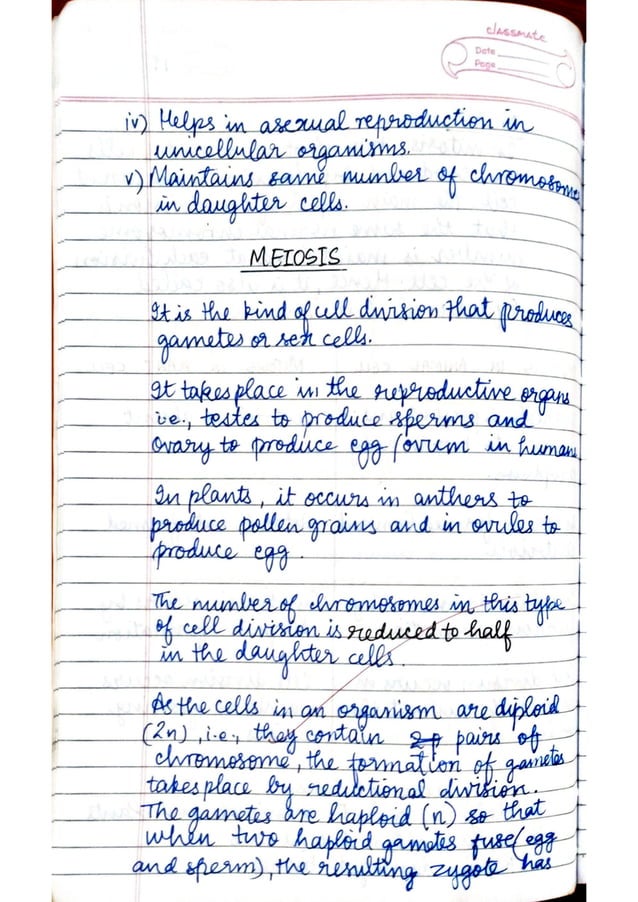 classmate
Date
Page
iv) Helps in asexual reproduction in
unicellular organisms.
v) Maintains same number of chromosomes
in daughter cells.
MEIOSIS
It is the kind of cell division that produces
gametes or sex cells.
It takes place in the reproductive organs
i.e., testes to produce sperms and
ovary to produce egg/ovum in humans
In plants, it occurs in anthers to
produce pollen grains and in ovules to
produce egg.
The number of chromosomes in this type
of cell division is reduced to half
in the daughter cells.
As the cells in an organism are diploid
(2n), i.e., they contain pairs of
chromosome, the formation of gametes
takes place by reductional division.
The gametes are haploid (n) so that
when two haploid gametes fuse (egg
and sperm), the resulting zygote has